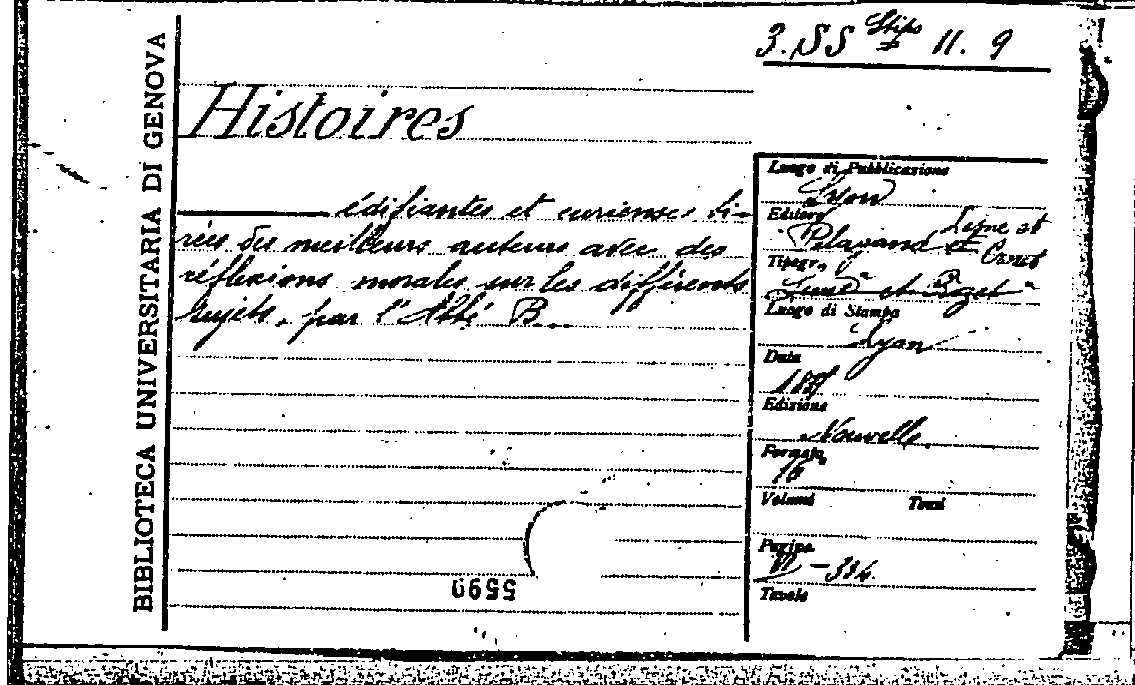 3.SS Stips 11. 9
BIBLIOTECA UNIVERSITARIA DI GENOVA
Histoires
édifiantes et curienses ti-
rées des meilleurs auteurs avec des
réflexions morales sur les différents
sujets, par l'Abbé B...
Luogo di Pubblicazione
Lyon
Editore
et
Tipogr.
et
Luogo di Stampa
Lyon
Data
Edizione
Nouvelle.
Formato
16
Volumi Tomi
Pagine
Tavole
5590